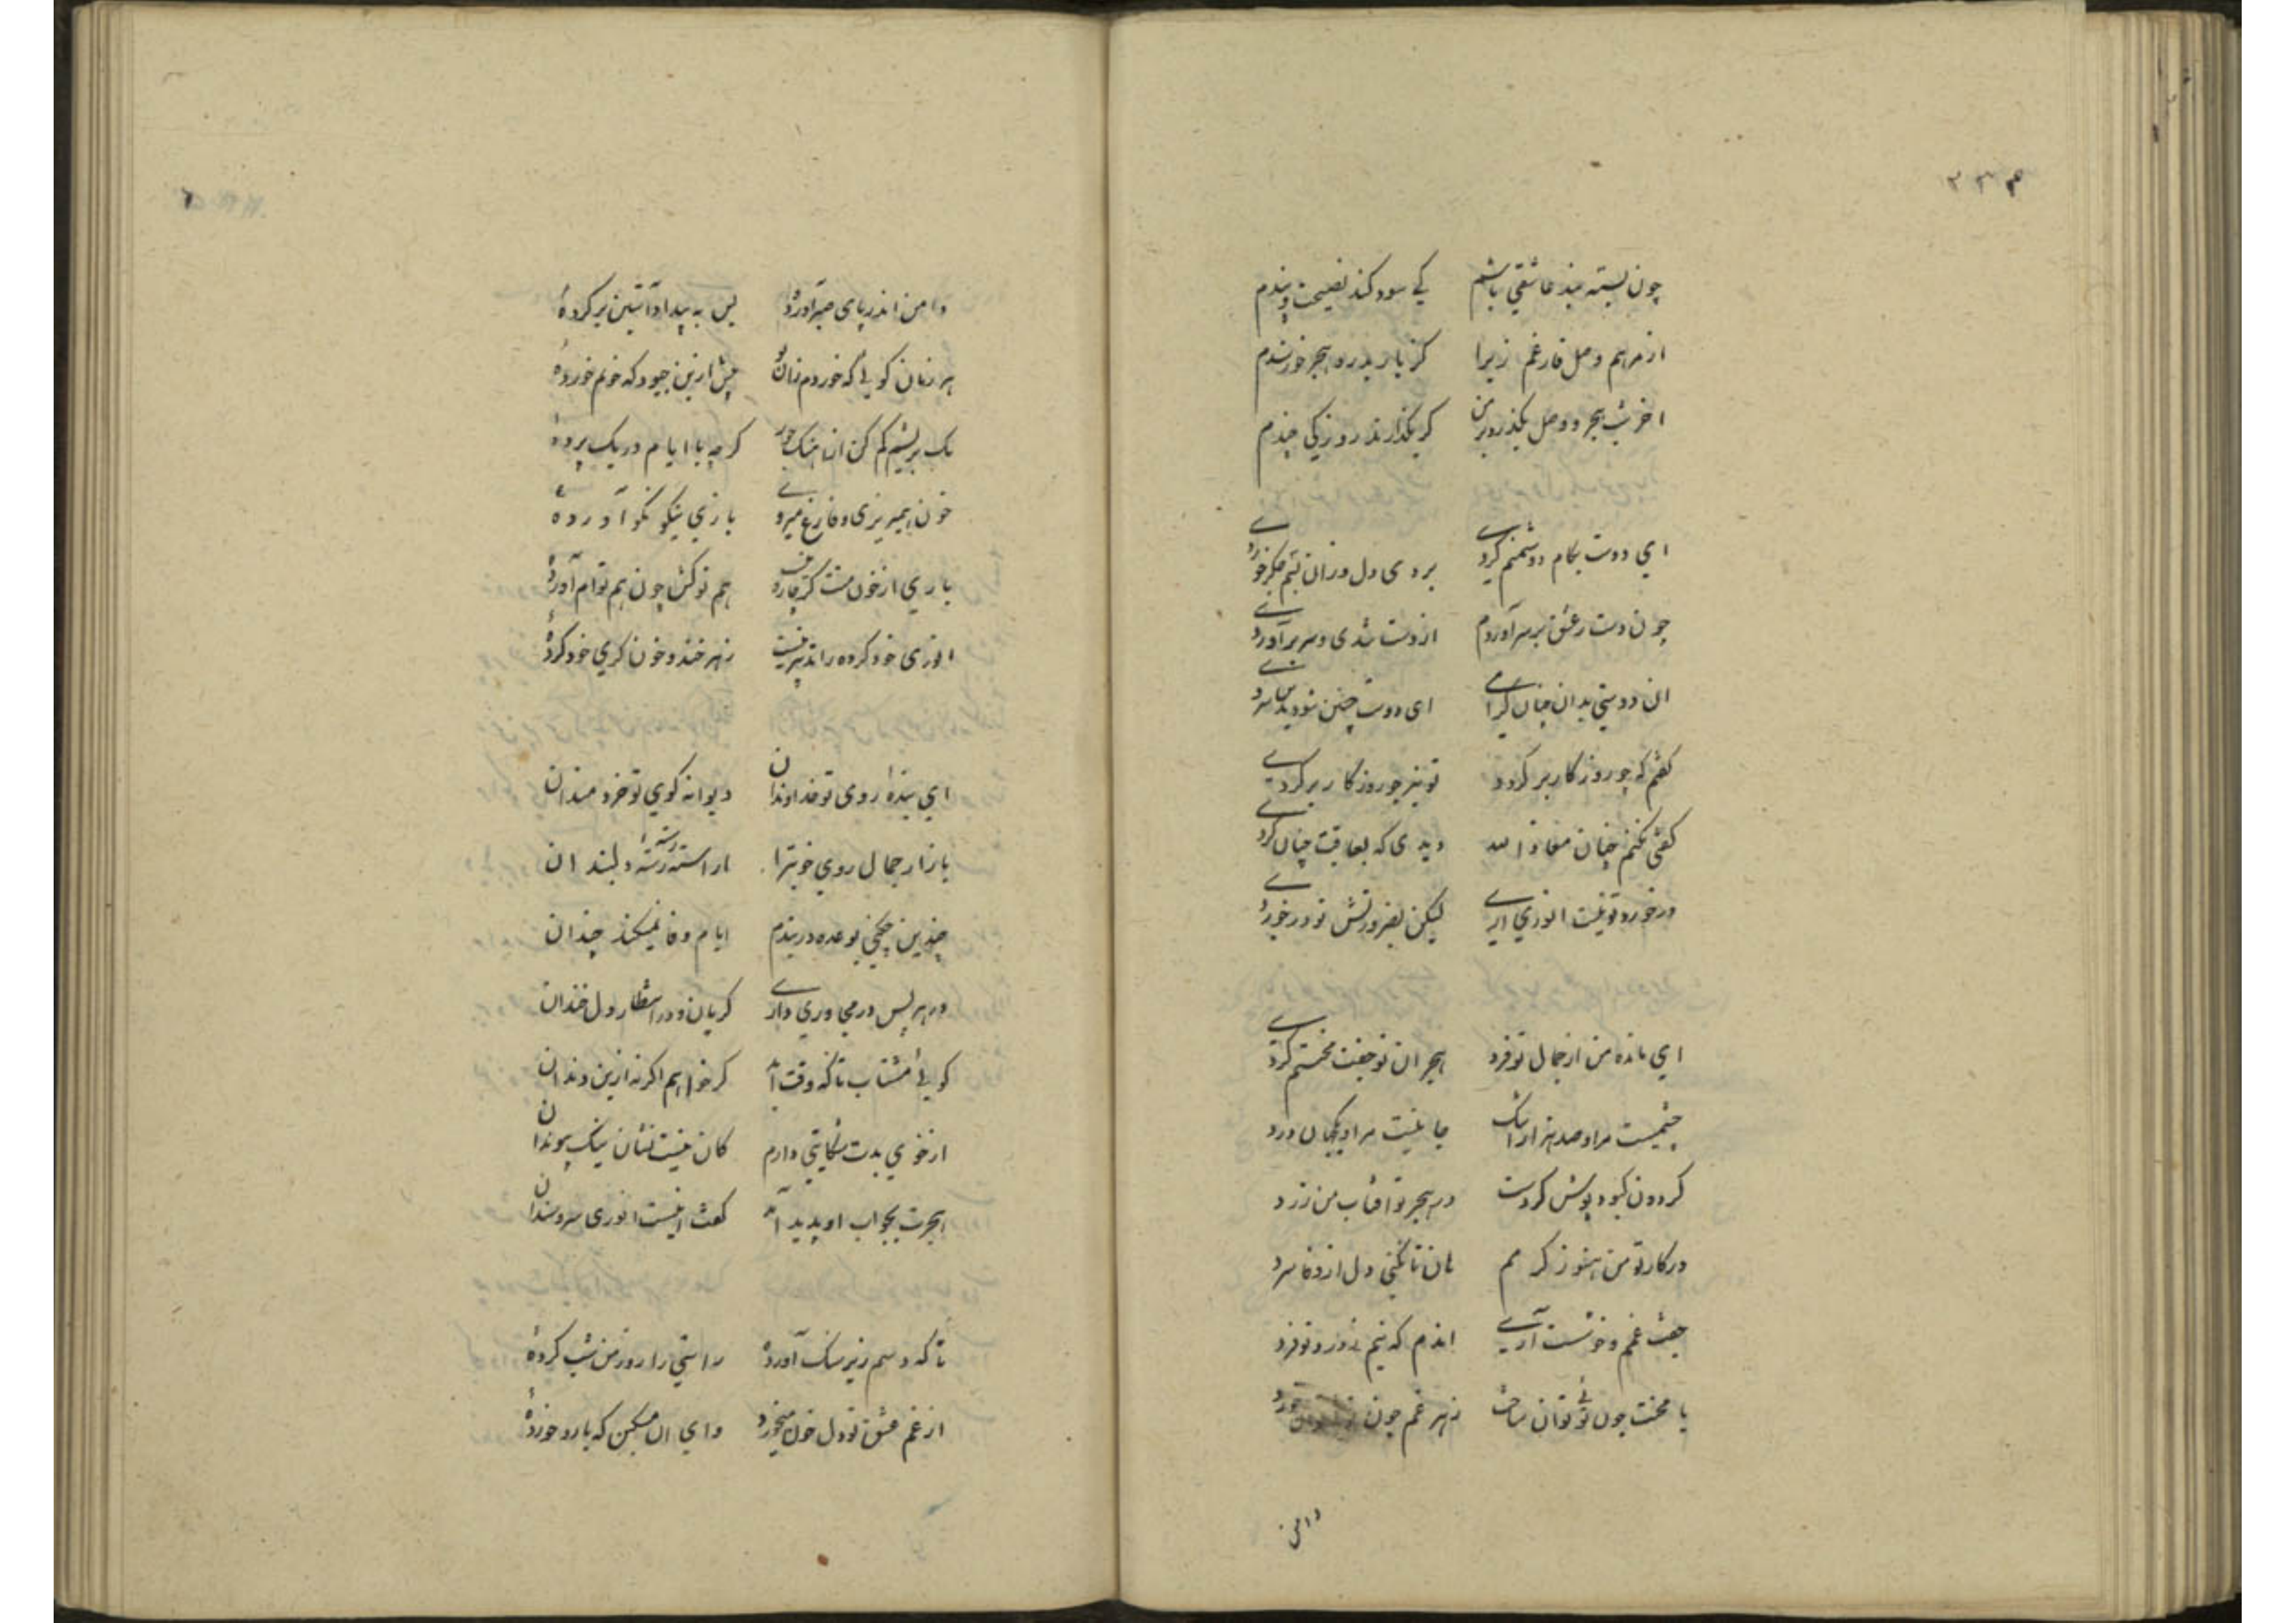 ۲۳۴
چون بسته بند عاشقي باشم کي سود کند نصیحت و پندم
از مرهم وصل فارغم زیرا کز یار بدرد هجر خورسندم
اخر شب هجر و وصل بگذرد بر من گر بگذارند روزکی چندم
اي دوست بکام دشمنم کردی بردی دل و زان بتر جگر خوردی
چون دست ز عشق بر سر آوردم از دست شدی و سر برآوردی
ان دوستی بدان چنان گرمی ای دوست چنین شود بدین سردی
گفتم که چو روزگار برگردد تو نیز چو روزگار برگردی
گفتی نکنم چنان معاذ الله دیدی که بعاقبت چنان کردی
درخورد تو نیست انوري اری لیکن بضرورتش تو درخوردی
اي مانده من از جمال تو فرد هجران تو جفت محنتم کرد
چشمیست مرا و صد هزار اشک جانیست مرا و یکجهان درد
گردون کبود پوش کردست در هجر تو افتاب من زرد
در کار تو من هنوز گرمم هان تا نکنی دل از وفا سرد
جفت غم و خوشست آری اندم که نیم ز درد تو فرد
با محنت چون توئی توان ساخت زهر غم چون توئی توان خورد
دامن
دامن اندر پای صبر آورده پس به بیداد آستین بر کرده
هر زمان گویی که خوردم زان تو بیش ازین چبود که خونم خورده
یک بریشم کم کن از اهنگ جور گرچه با ایام در یک پرده
خون همیریزی و فارغ میروی بازي نیکو نکو آورده
باري از خون منت گر چاره نیست هم تو کش چون هم توام آورده
انوری خود کرده را تدبیر نیست زهر خند و خون گري خود کرده
اي بنده روی تو خداوندان دیوانه کوي تو خردمندان
بازار جمال روي خوبترا اراسته رسته رسته دلبندان
چندین چکني بوعده دربندم ایام وفا نمیکند چندان
در هر پس در مجاوري داری گریان و در انتظار دل خندان
گویی مشتاب تا که وقت آید گر خواهم اگر نه ازین دندان
از خوي بدت شکایتي دارم کان نیست نشان نیک پیوندان
هجرت بجواب او پدید آمد گفت اینست انوری سر و سندان
تا که دستم زیر سنگ آورده راستي را روز من شب کرده
از غم عشق تو دل خون میخورد وای ان مسکین که با او خورده